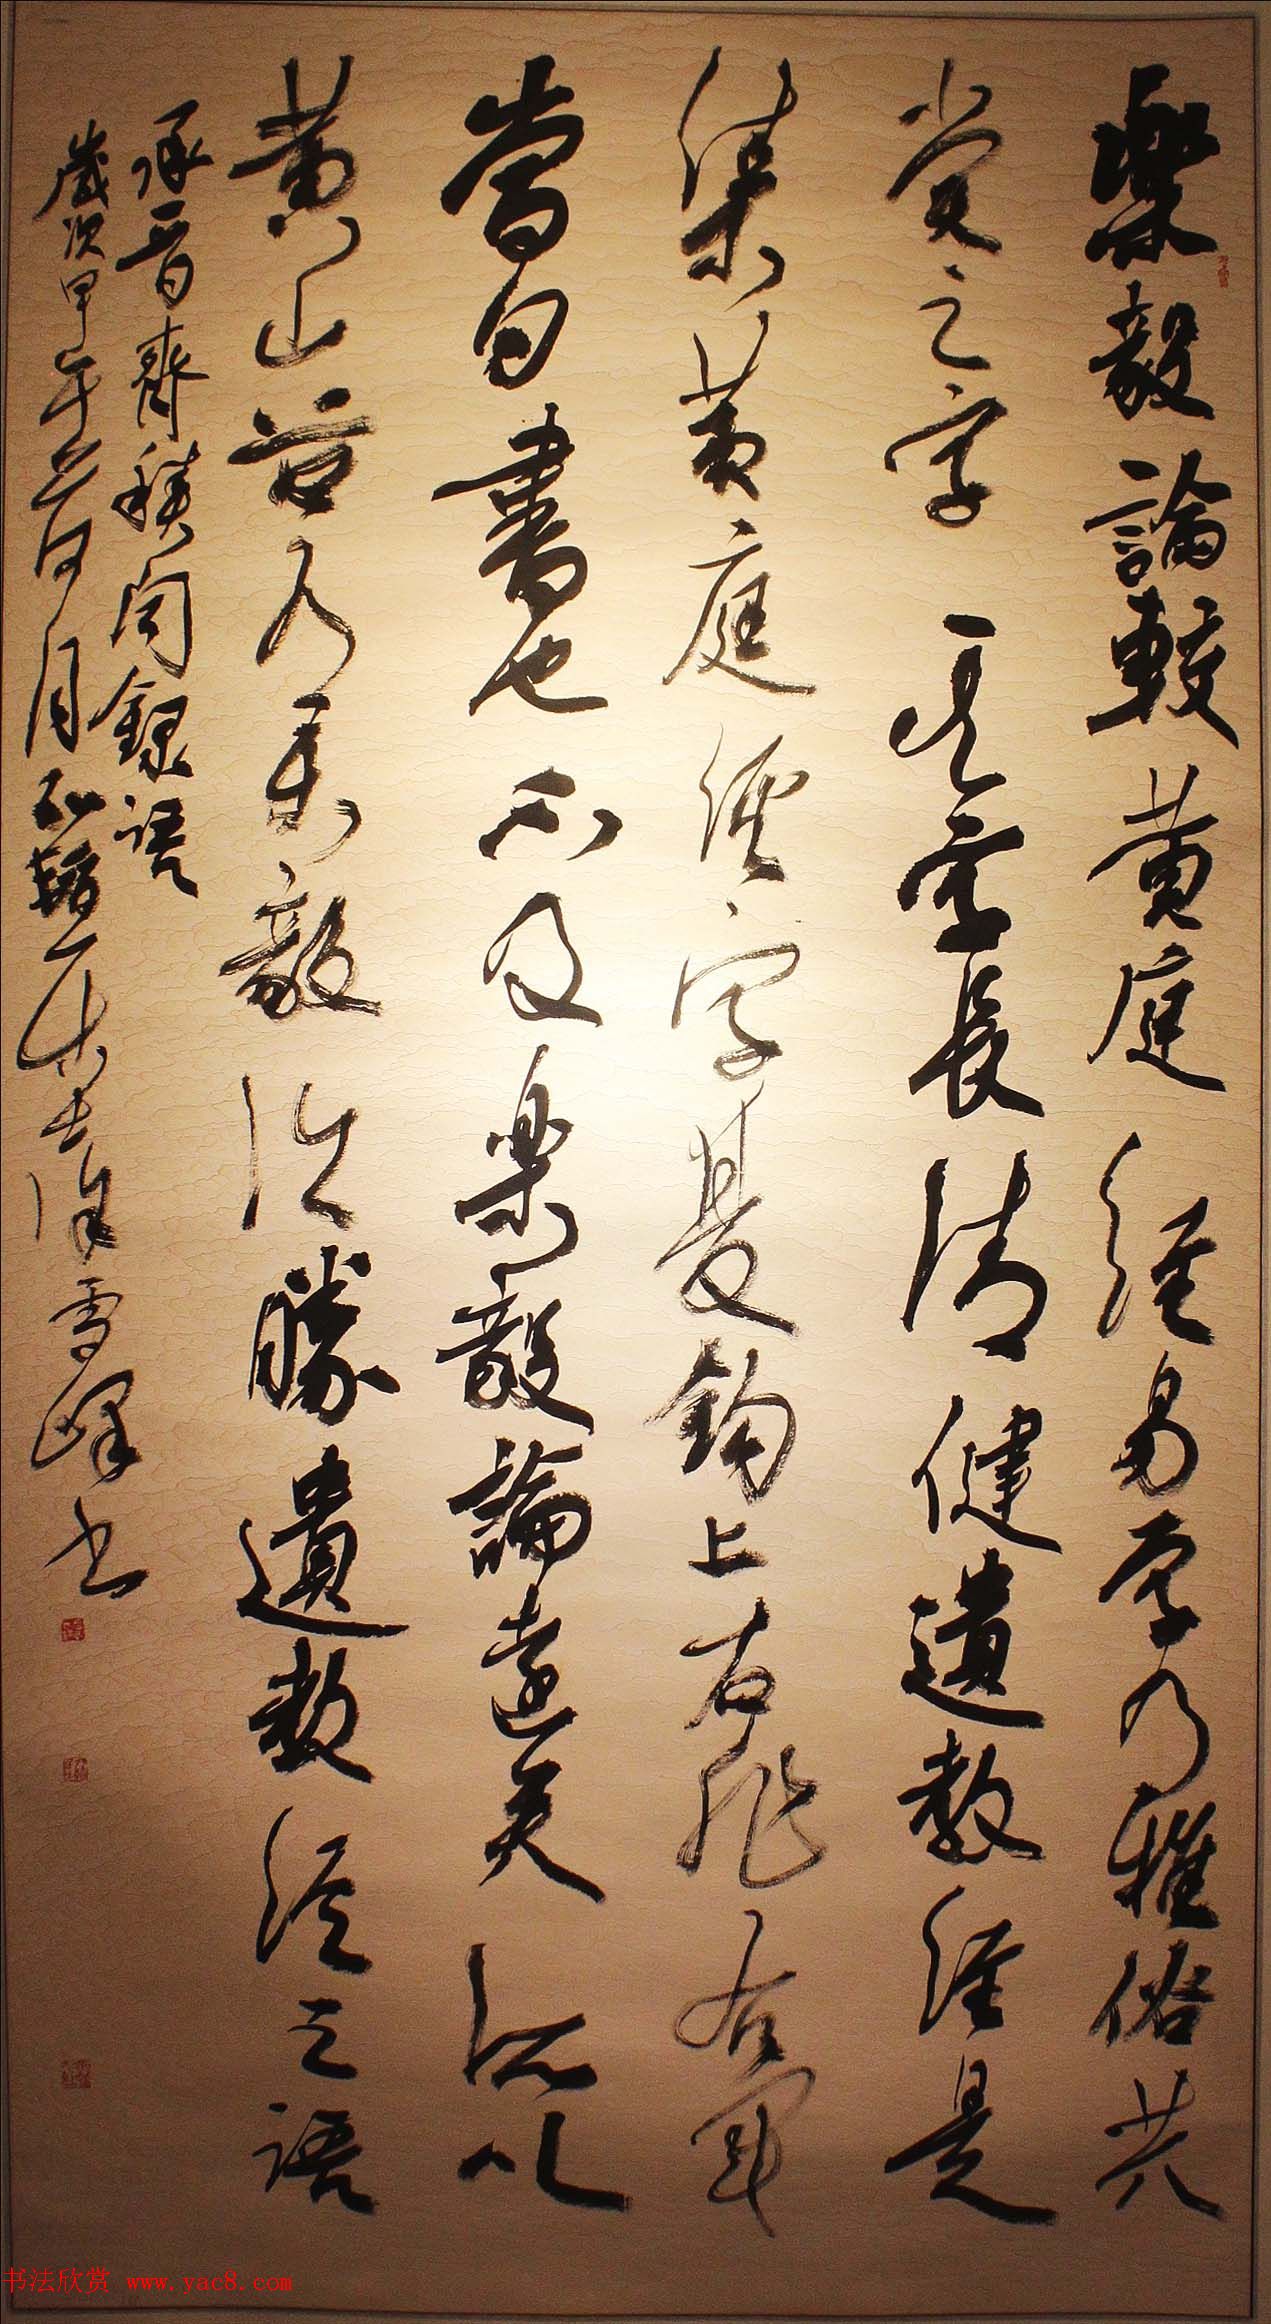 樂毅論較黃庭經易學乃雅俗共
賞之字其字長清健遺教經是
集黃庭經字是鉤上古非右軍
當自書也不及樂毅論遠矣所以
黃山谷乃有毅論勝遺教經之語
承晉齋積聞錄語
歲次甲午
月
雪峰書
书法欣赏 www.yac8.com